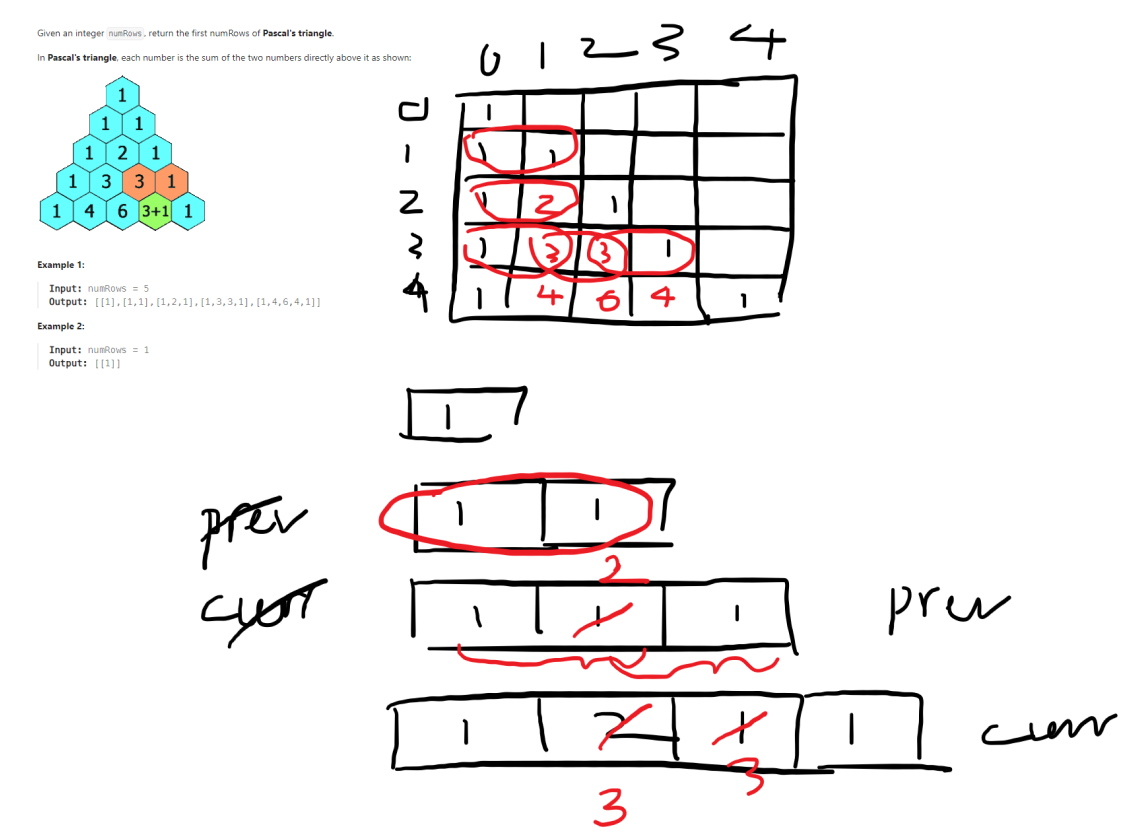 Given an integer numRows, return the first numRows of Pascal's triangle.
In Pascal's triangle, each number is the sum of the two numbers directly above it as shown:
1
1 1
1 2 1
1 3 3 1
1 4 6 3+1 1
Example 1:
Input: numRows = 5
Output: [[1],[1,1],[1,2,1],[1,3,3,1],[1,4,6,4,1]]
Example 2:
Input: numRows = 1
Output: [[1]]
0 1 2 3 4
0 1
1 1 1
2 1 2 1
3 1 3 3 1
4 1 4 6 4 1
1
prev 1 1
2
curr 1 1 1 prev
1 2 1 1 curr
3 3